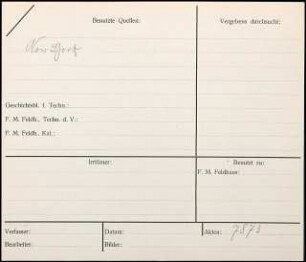 Benutzte Quellen:
Vergebens durchsucht:
New York
Geschichtsbl. f. Techn.:
F. M. Feldh., Techn. d. V.:
F. M. Feldh., Kal.:
Irrtümer:
Benutzt zu:
F. M. Feldhaus:
Verfasser:
Daten:
Akten: 7873
Bearbeiter:
Bilder: